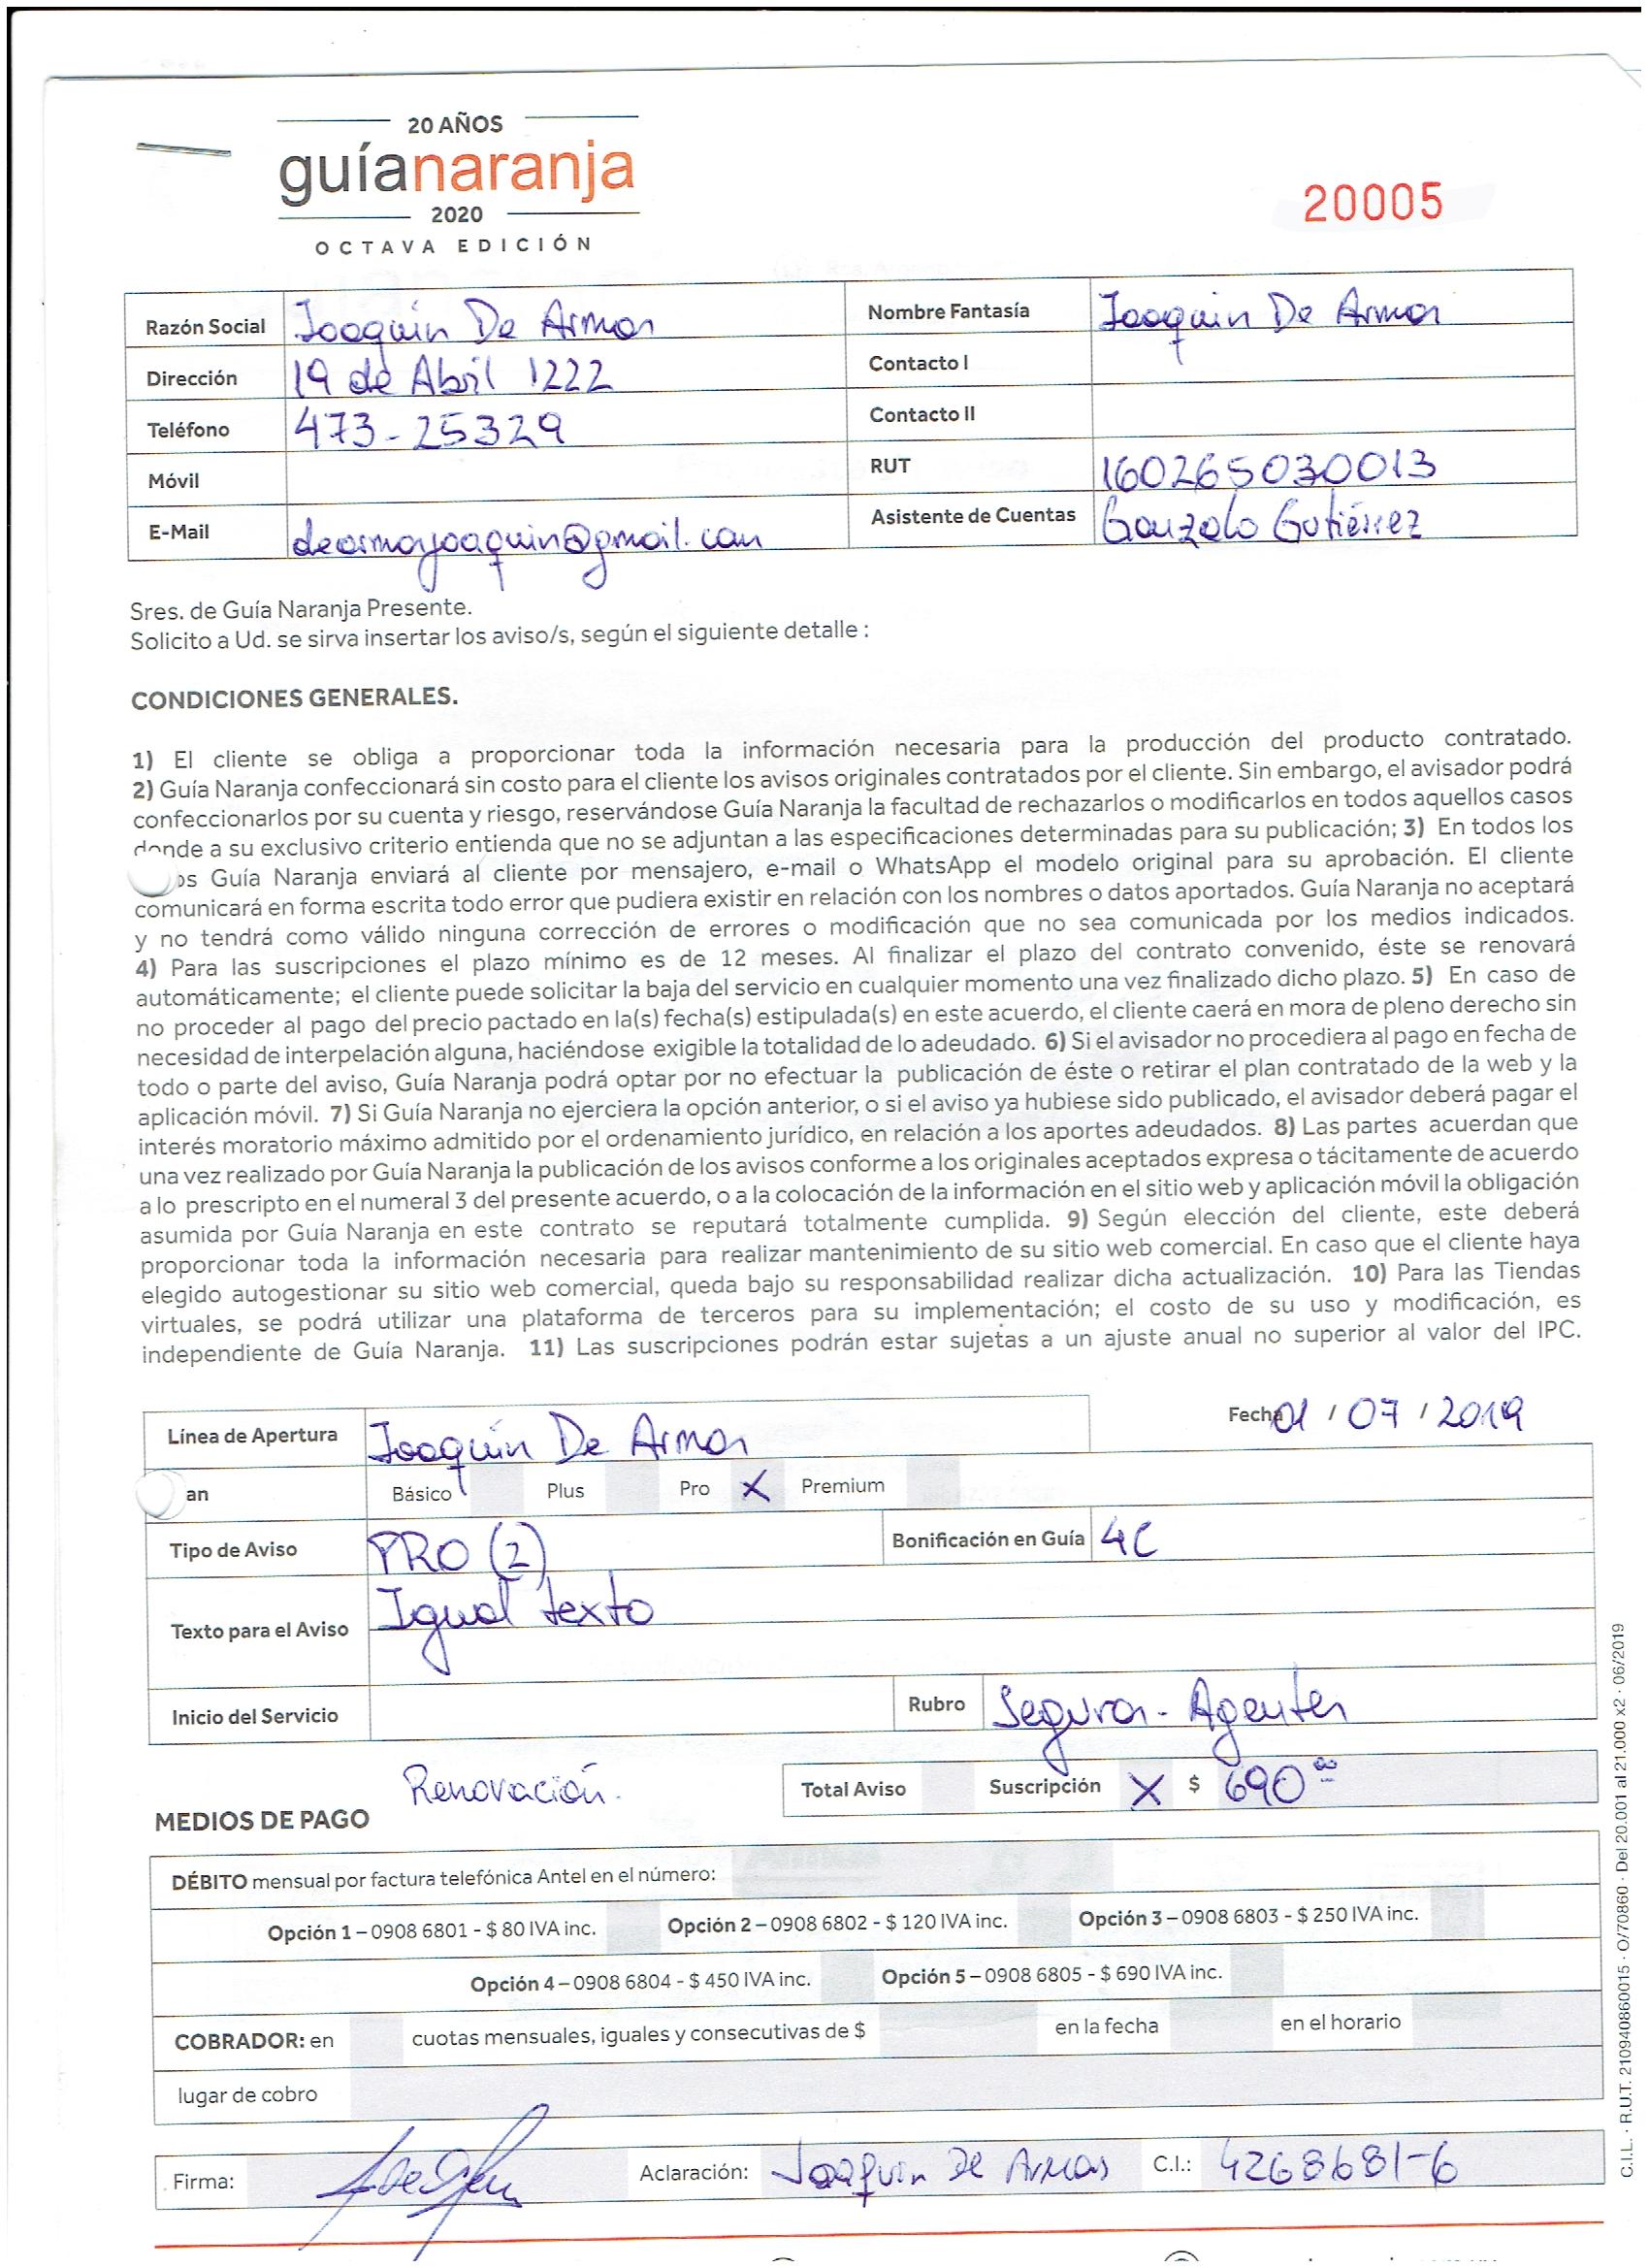 20 AÑOS
guíanaranja
2020
OCTAVA EDICIÓN
20005
Razón Social Joaquin De Armas Nombre Fantasía Joaquin De Armas
Dirección 19 de Abril 1222 Contacto I
Teléfono 473-25329 Contacto II
Móvil RUT 160265030013
E-Mail dearmasjoaquin@gmail.com Asistente de Cuentas Gonzalo Gutiérrez
Sres. de Guía Naranja Presente.
Solicito a Ud. se sirva insertar los aviso/s, según el siguiente detalle :
CONDICIONES GENERALES.
1) El cliente se obliga a proporcionar toda la información necesaria para la producción del producto contratado.
2) Guía Naranja confeccionará sin costo para el cliente los avisos originales contratados por el cliente. Sin embargo, el avisador podrá
confeccionarlos por su cuenta y riesgo, reservándose Guía Naranja la facultad de rechazarlos o modificarlos en todos aquellos casos
donde a su exclusivo criterio entienda que no se adjuntan a las especificaciones determinadas para su publicación; 3) En todos los
os Guía Naranja enviará al cliente por mensajero, e-mail o WhatsApp el modelo original para su aprobación. El cliente
comunicará en forma escrita todo error que pudiera existir en relación con los nombres o datos aportados. Guía Naranja no aceptará
y no tendrá como válido ninguna corrección de errores o modificación que no sea comunicada por los medios indicados.
4) Para las suscripciones el plazo mínimo es de 12 meses. Al finalizar el plazo del contrato convenido, éste se renovará
automáticamente; el cliente puede solicitar la baja del servicio en cualquier momento una vez finalizado dicho plazo. 5) En caso de
no proceder al pago del precio pactado en la(s) fecha(s) estipulada(s) en este acuerdo, el cliente caerá en mora de pleno derecho sin
necesidad de interpelación alguna, haciéndose exigible la totalidad de lo adeudado. 6) Si el avisador no procediera al pago en fecha de
todo o parte del aviso, Guía Naranja podrá optar por no efectuar la publicación de éste o retirar el plan contratado de la web y la
aplicación móvil. 7) Si Guía Naranja no ejerciera la opción anterior, o si el aviso ya hubiese sido publicado, el avisador deberá pagar el
interés moratorio máximo admitido por el ordenamiento jurídico, en relación a los aportes adeudados. 8) Las partes acuerdan que
una vez realizado por Guía Naranja la publicación de los avisos conforme a los originales aceptados expresa o tácitamente de acuerdo
a lo prescripto en el numeral 3 del presente acuerdo, o a la colocación de la información en el sitio web y aplicación móvil la obligación
asumida por Guía Naranja en este contrato se reputará totalmente cumplida. 9) Según elección del cliente, este deberá
proporcionar toda la información necesaria para realizar mantenimiento de su sitio web comercial. En caso que el cliente haya
elegido autogestionar su sitio web comercial, queda bajo su responsabilidad realizar dicha actualización. 10) Para las Tiendas
virtuales, se podrá utilizar una plataforma de terceros para su implementación; el costo de su uso y modificación, es
independiente de Guía Naranja. 11) Las suscripciones podrán estar sujetas a un ajuste anual no superior al valor del IPC.
Línea de Apertura Joaquin De Armas Fecha 01 / 07 / 2019
an Básico Plus Pro X Premium
Tipo de Aviso PRO (2) Bonificación en Guía 4C
Texto para el Aviso Igual texto
Inicio del Servicio Rubro Seguros - Agentes
Renovación. Total Aviso Suscripción X $ 690 00
MEDIOS DE PAGO
DÉBITO mensual por factura telefónica Antel en el número:
Opción 1 – 0908 6801 - $ 80 IVA inc. Opción 2 – 0908 6802 - $ 120 IVA inc. Opción 3 – 0908 6803 - $ 250 IVA inc.
Opción 4 – 0908 6804 - $ 450 IVA inc. Opción 5 – 0908 6805 - $ 690 IVA inc.
COBRADOR: en cuotas mensuales, iguales y consecutivas de $ en la fecha en el horario
lugar de cobro
Firma: Aclaración: Joaquin De Armas C.I.: 4268681-6
C.I.L. · R.U.T. 210940860015 · O/70860 · Del 20.001 al 21.000 x2 · 06/2019